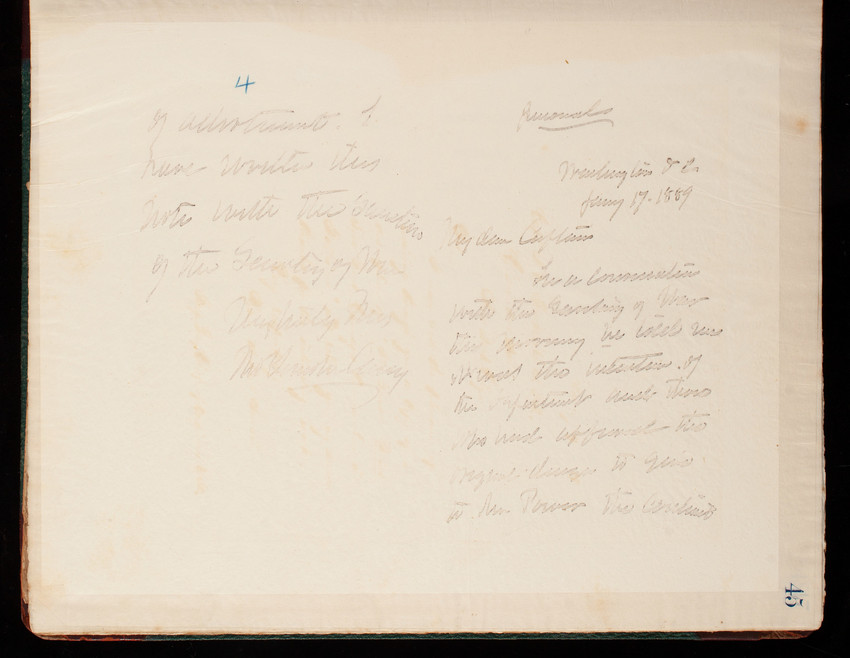 4
of allotment. I
have written this
note with the sanction
of the Secretary of War
Very truly Yours
Thos Lincoln Casey
Personal
Washington D C
Jany 17. 1889
My dear Captain
In a conversation
with the Secretary of War
this morning he told me
it was the intention of
the and those
who had approved the
original design to give
to Mr the
45